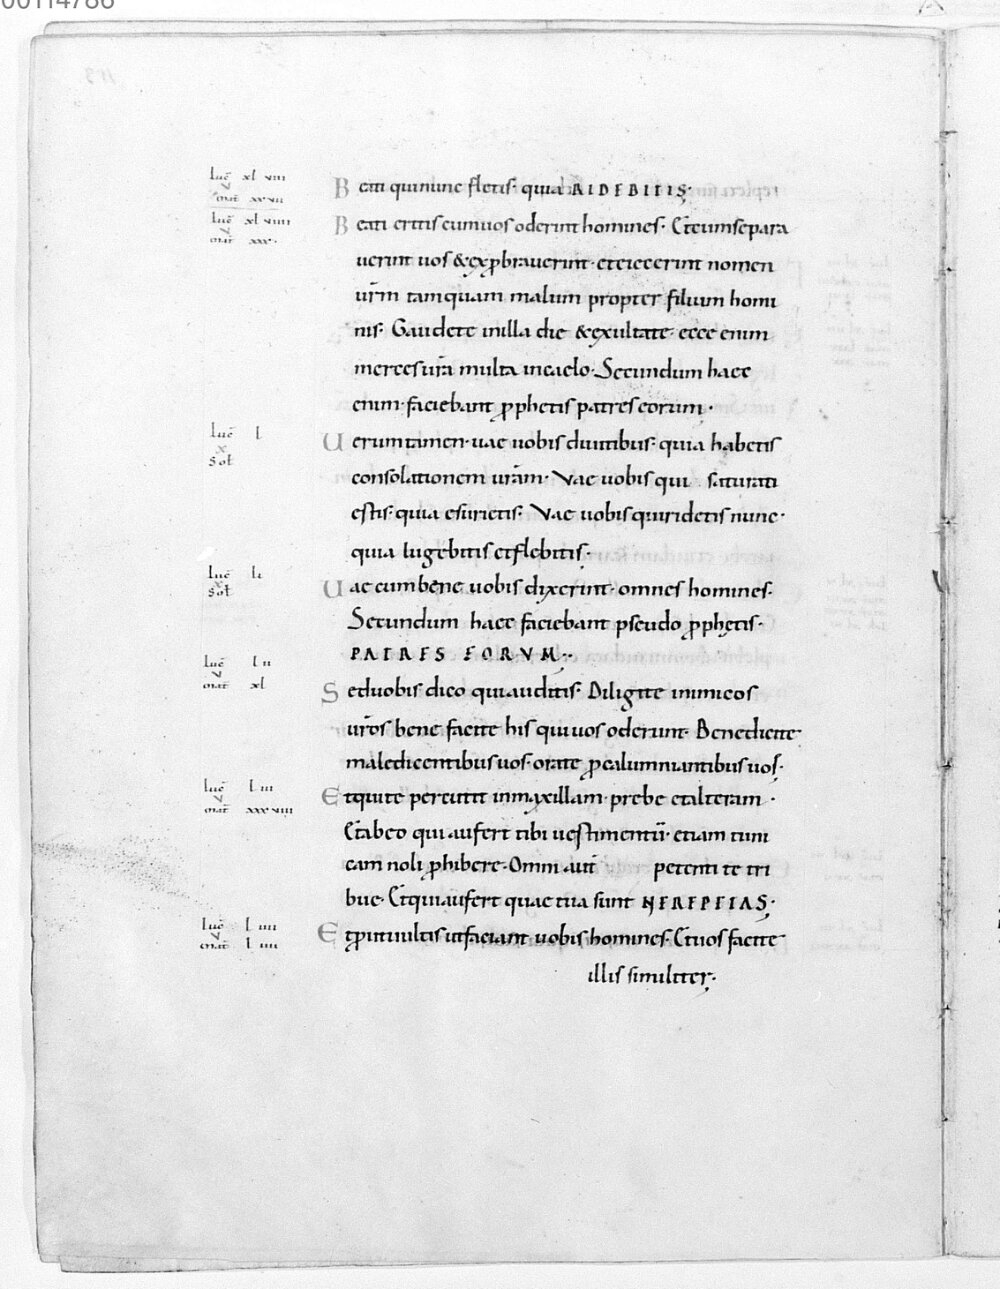 00114786
luc xl viii
v
mat xxvii
Beati qui nunc fletis· quia RIDEBITIS·
luc xl viiii
v
mat xxx·
Beati eritis cum uos oderint homines· Et cum separa
uerint uos & exp̱brauerint· et eiecerint nomen
ur̄m tamquam malum propter filium homi
nis· Gaudete in illa die & exultate· ecce enim
merces ur̄a multa in caelo· Secundum haec
enim· faciebant p̱phetis patres eorum·
luc l
x
sol
Uerumtamen· uae uobis diuitibus· quia habetis
consolationem ur̄am· Vae uobis qui saturati
estis· quia esurietis· Vae uobis qui ridetis nunc·
quia lugebitis et flebitis·
luc li
x
sol
Uae cum bene uobis dixerint· omnes homines·
Secundum haec faciebant pseudo p̱phetis·
PATRES EORVM·
luc l ii
v
mat xl
Sed uobis dico qui auditis· Diligite inimicos
ur̄os bene facite his qui uos oderunt· Benedicite·
maledicentibus uos· orate p̱ calumniantibus uos·
luc l iii
v
mat xxxviiii
Et qui te percutit in maxillam· prebe et alteram·
Et ab eo qui aufert tibi uestimentū· etiam tuni
cam noli p̱hibere· Omni aut̄ petenti te tri
bue· Et qui aufert quae tua sunt NE REPETAS·
luc l iiii
v
mat l iiii
Et p̱ut uultis ut faciant uobis homines· Et uos facite
illis similiter·